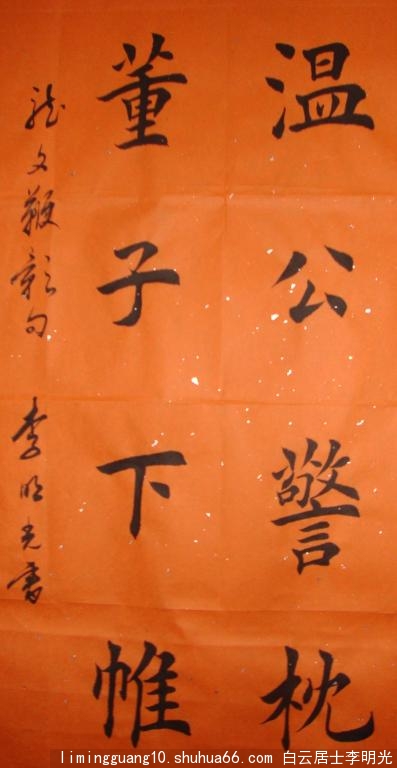 温公警枕
董子下帷
龙文鞭影句 李明光書
limingguang10.shuhua66.com 白云居士李明光